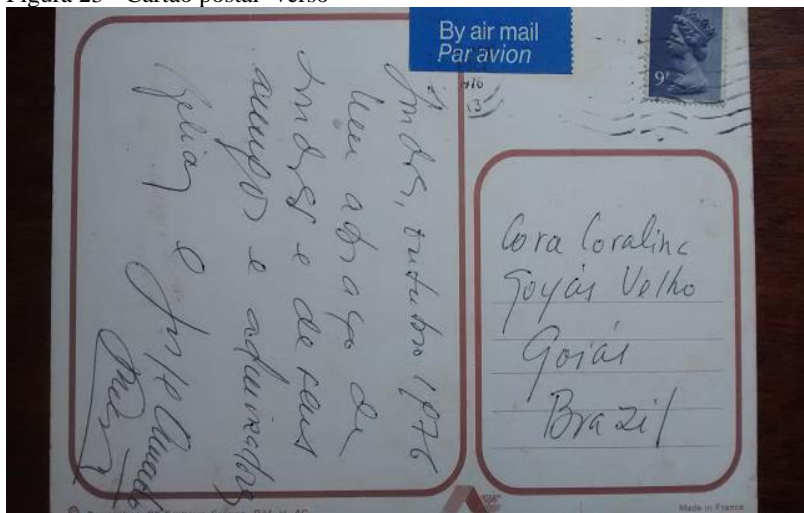 Figura 23 - Cartão postal- verso
By air mail
Par avion
9P
Londres, outubro 1976
Um abraço de
Londres e de seus
amigos e admiradores
Zélia e Jorge Amado
Cora Coralina
Goyás Velho
Goiás
Brazil
Made in France